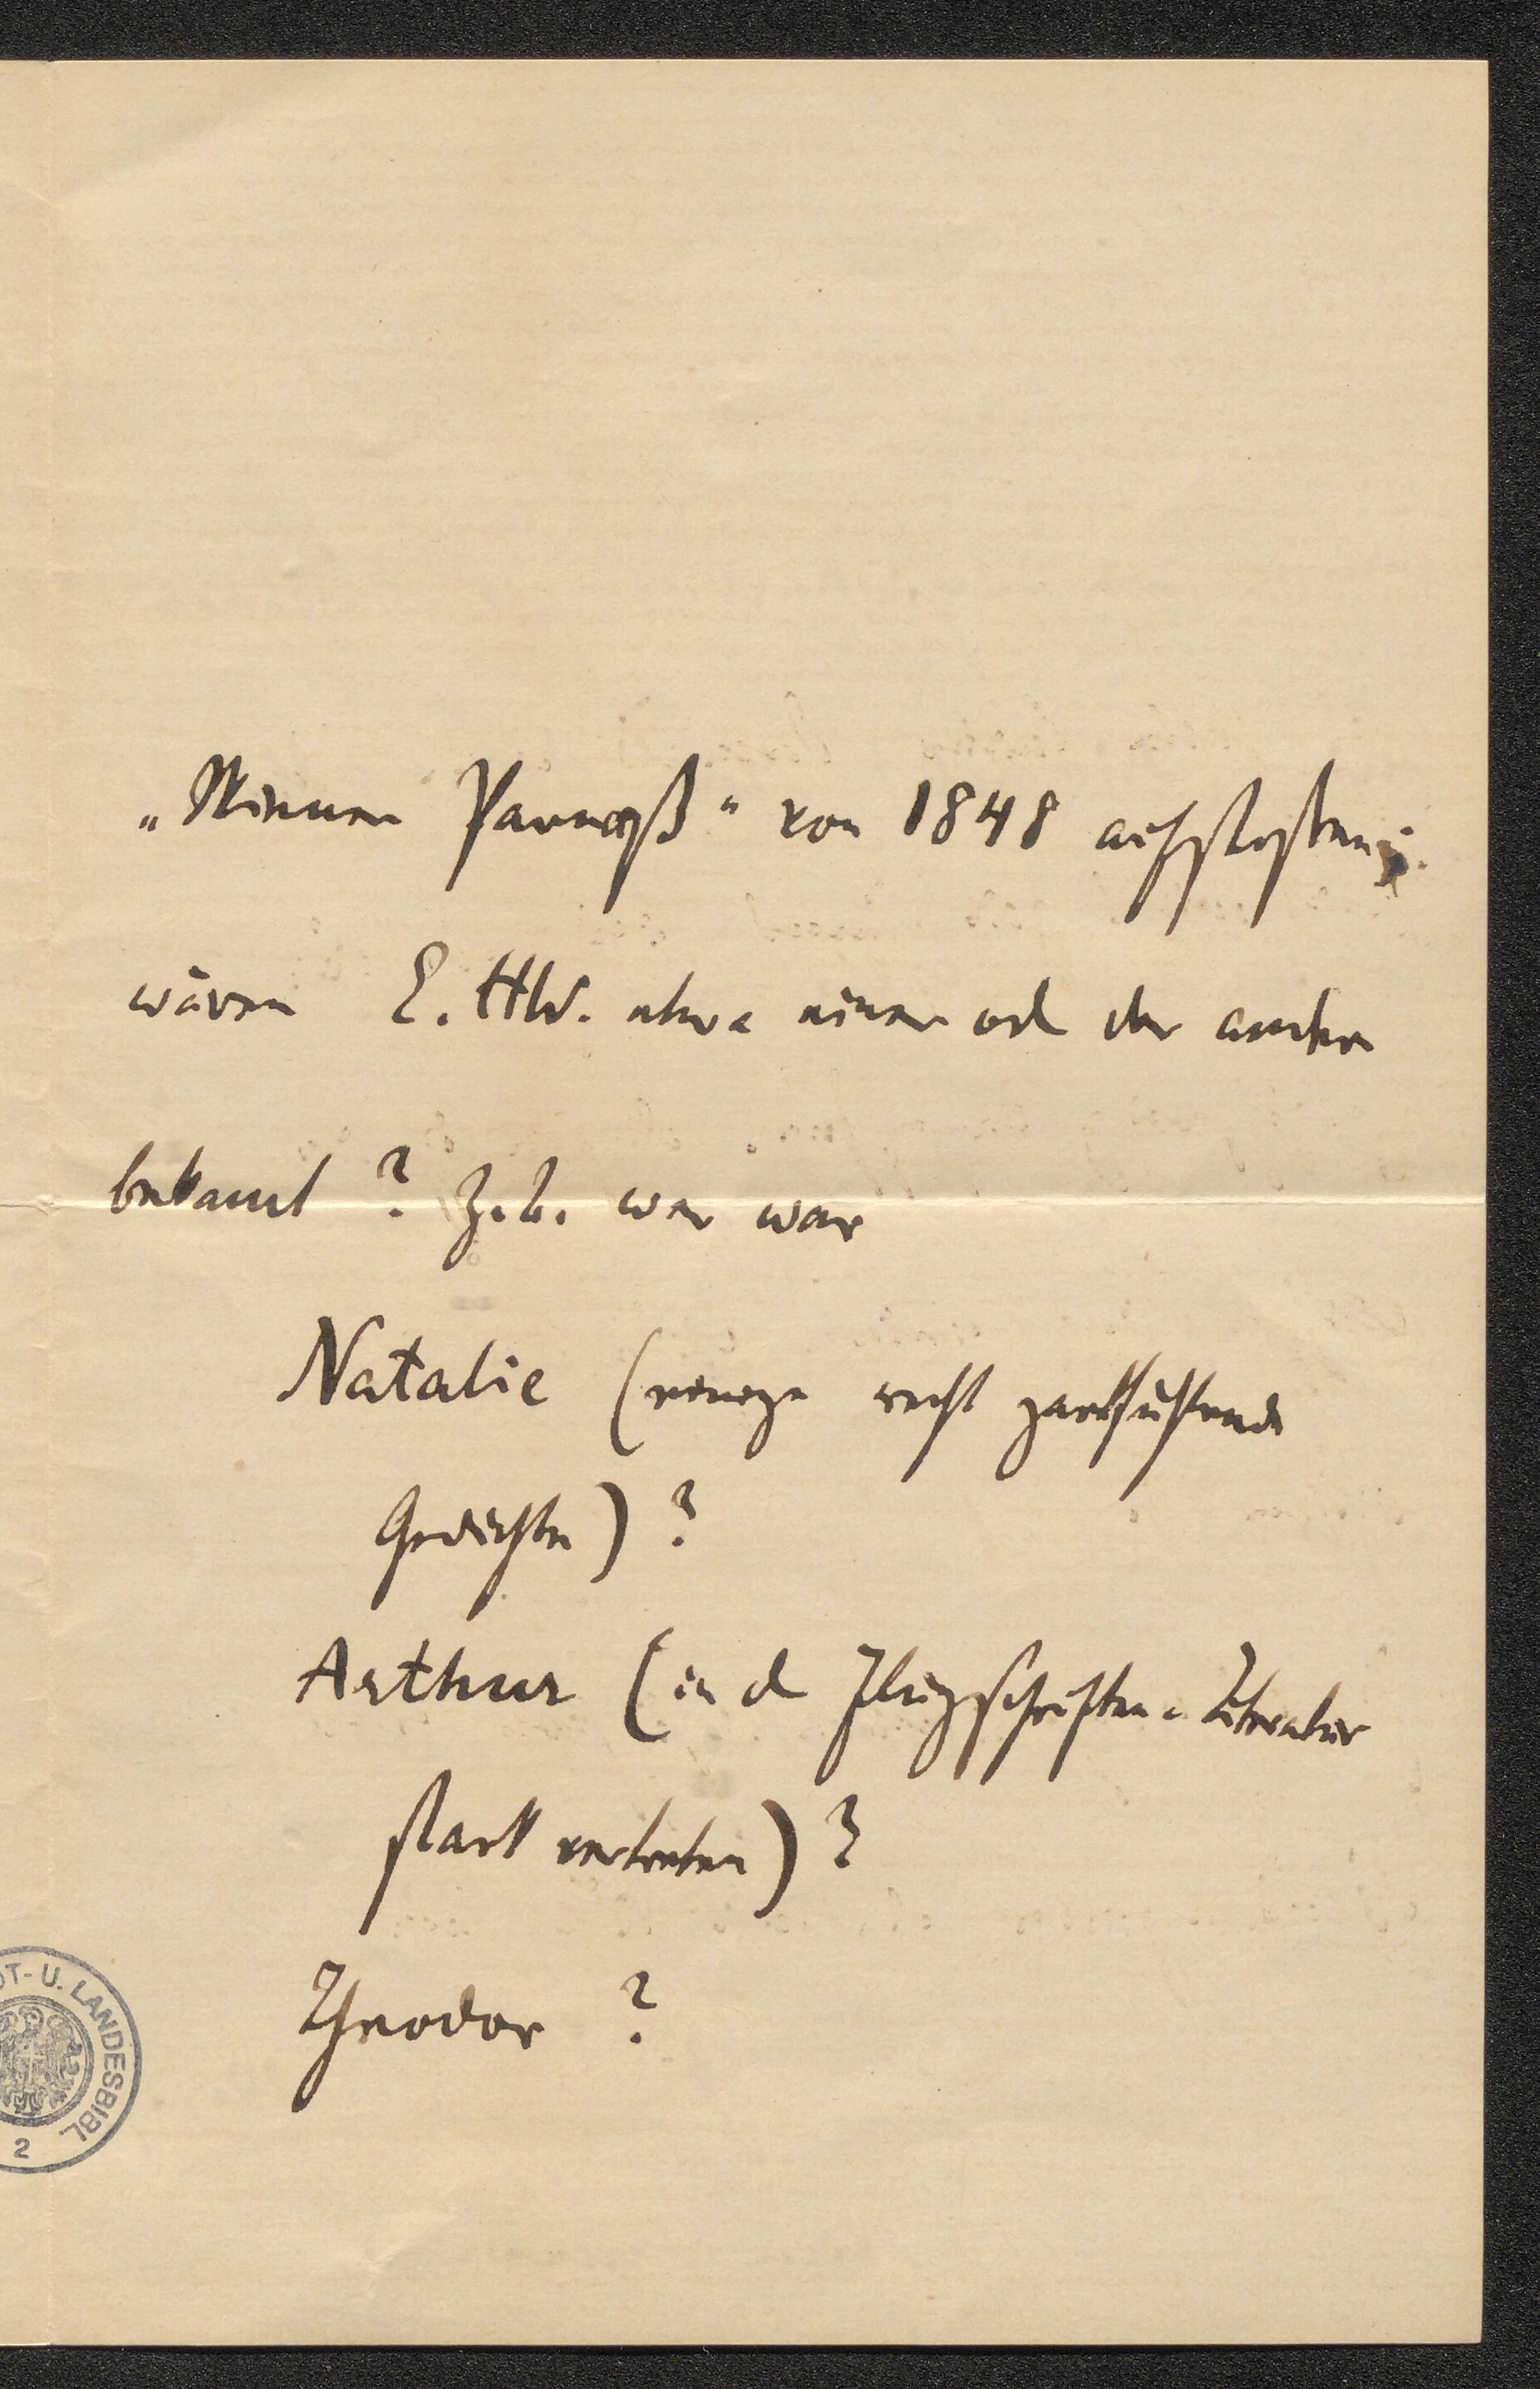 „Wiener Parnaß“ von 1848 aufstoßen;
wären E. HW. etwa einer od der andere
bekannt? Z.b. wer war
Natalie (einige recht zartfühlende
Gedichte)?
Arthur (in d Flugschriften-Literatur
stark vertreten)?
Theodor?
DT- U. LANDESBIBL
2